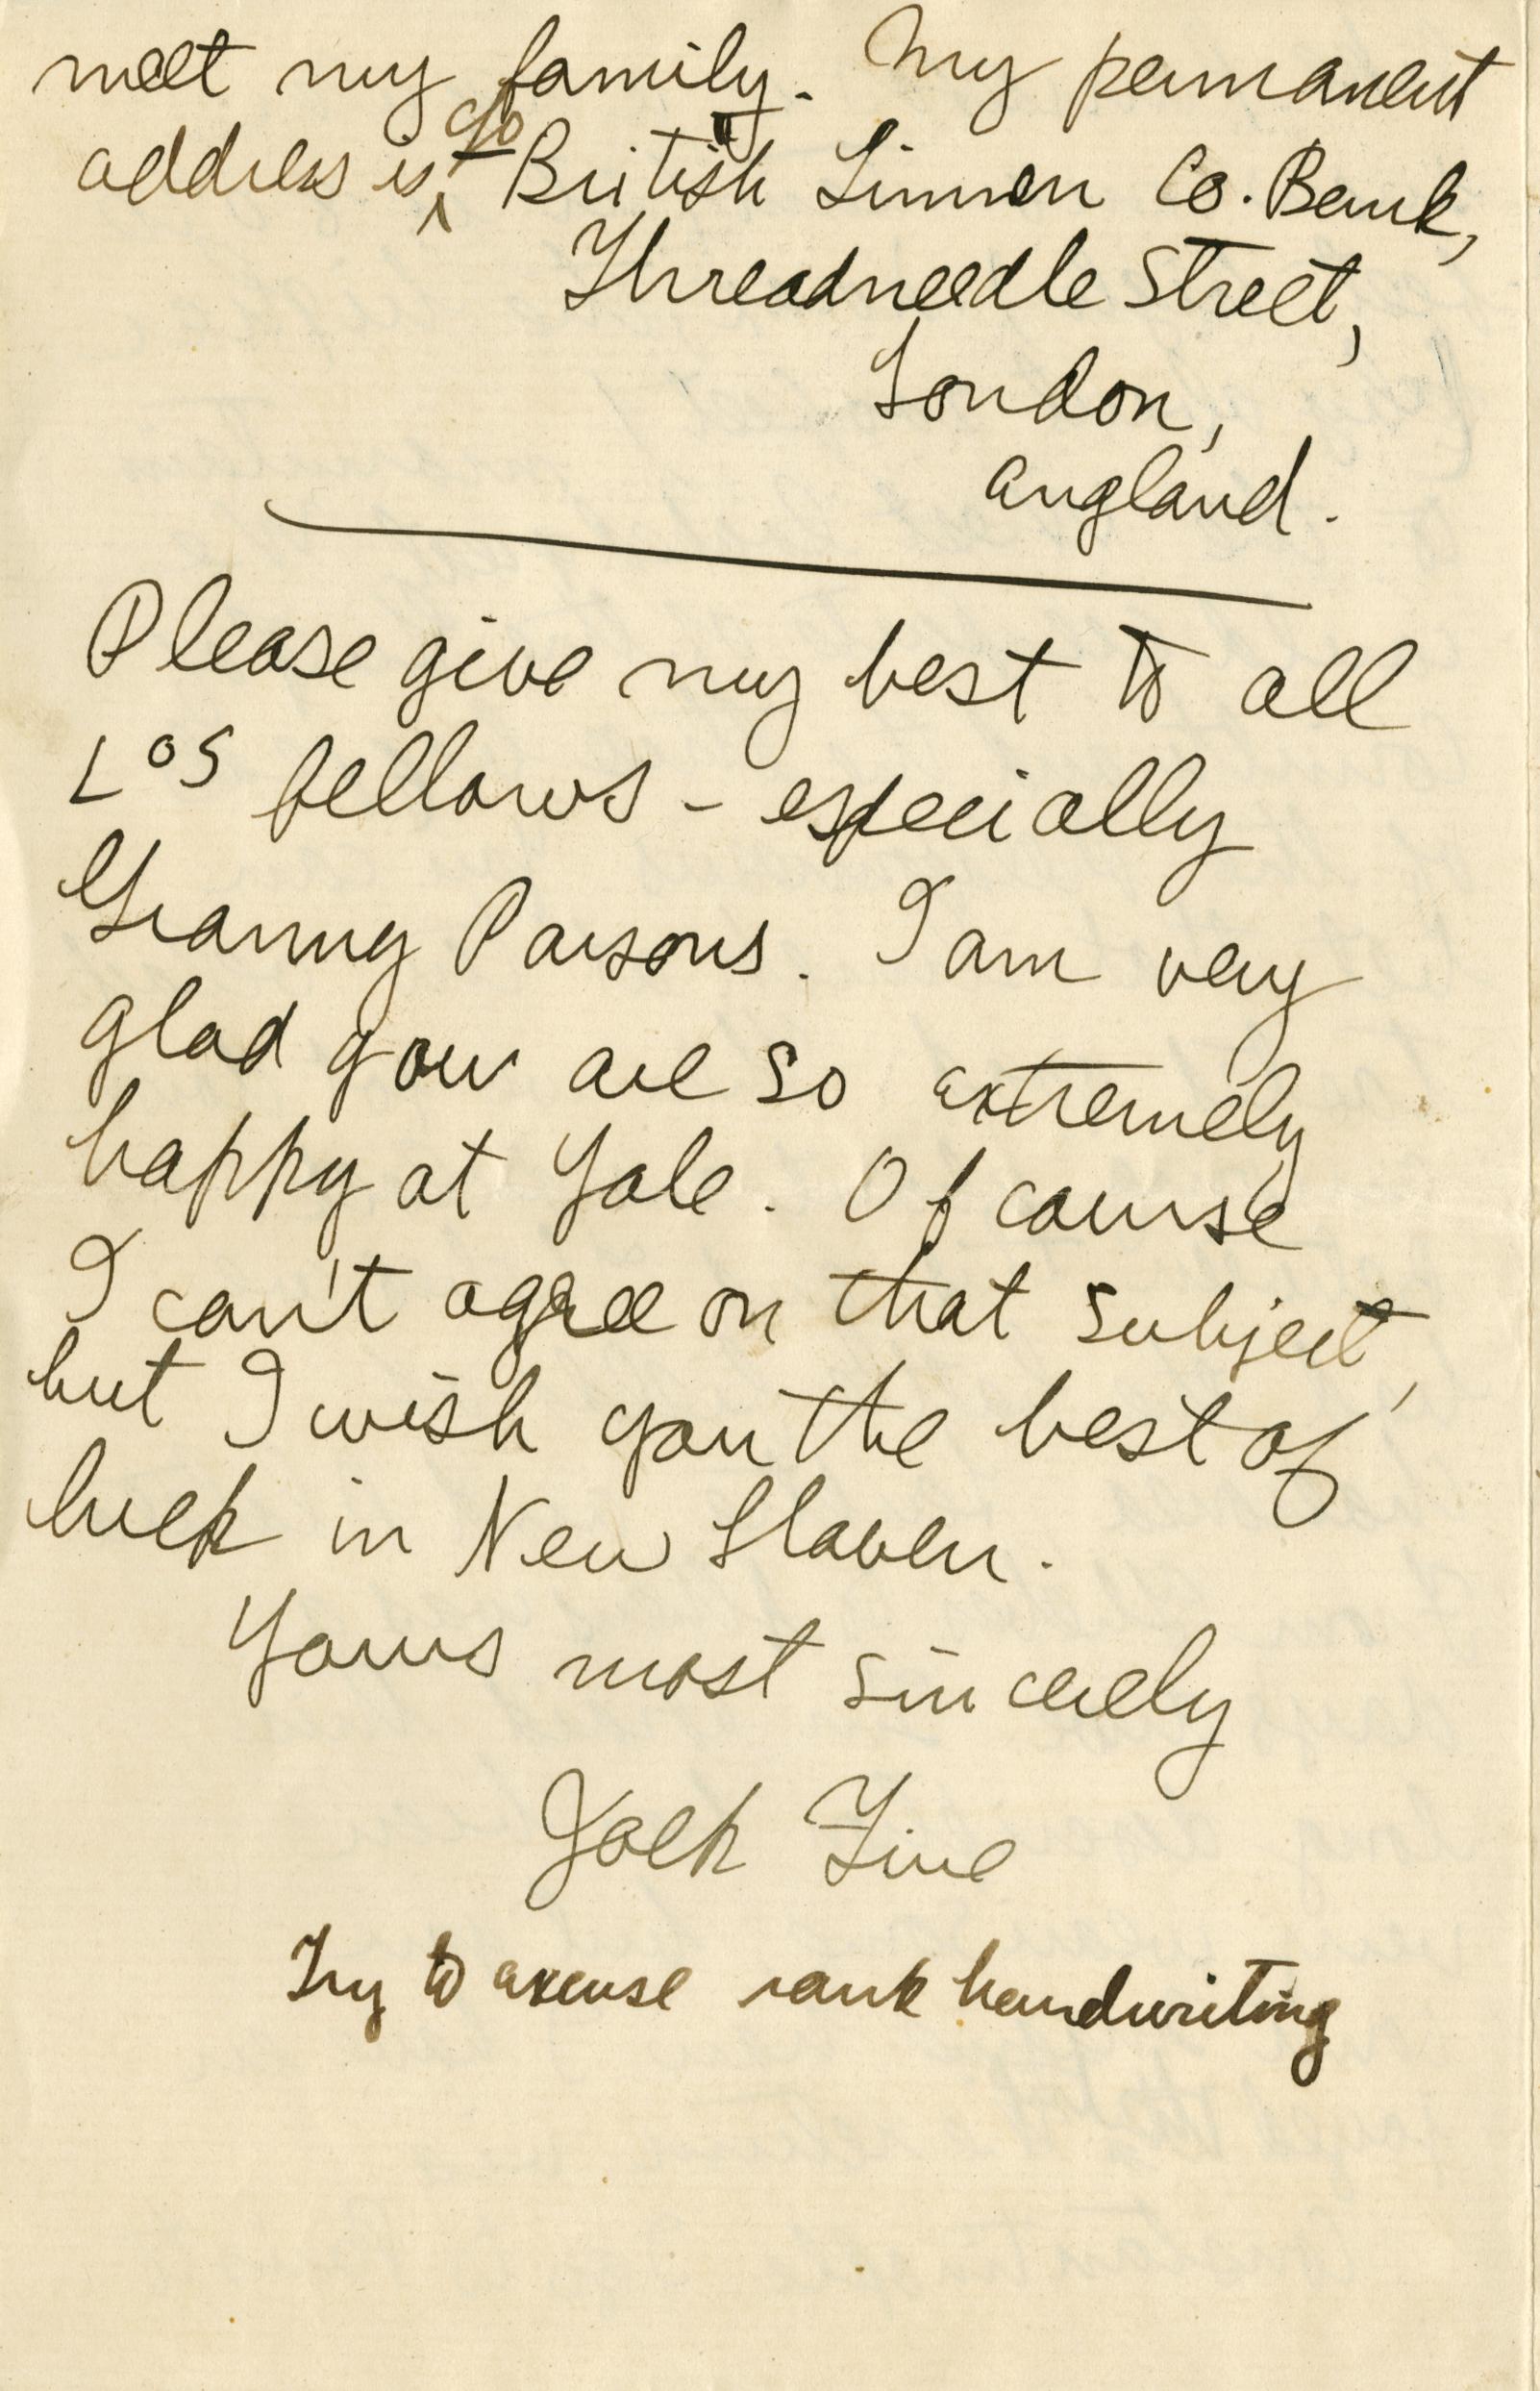 meet my family. My permanent
address is c/o British Linnen Co. Bank,
Threadneedle Street,
London,
England.
Please give my best to all
LOS fellows - especially
Granny Parsons. I am very
glad you are so extremely
happy at Yale. Of course
I can't agree on that subject,
but I wish you the best of
luck in New Haven.
Yours most sincerely
Jack Fine
Try to excuse rank handwriting